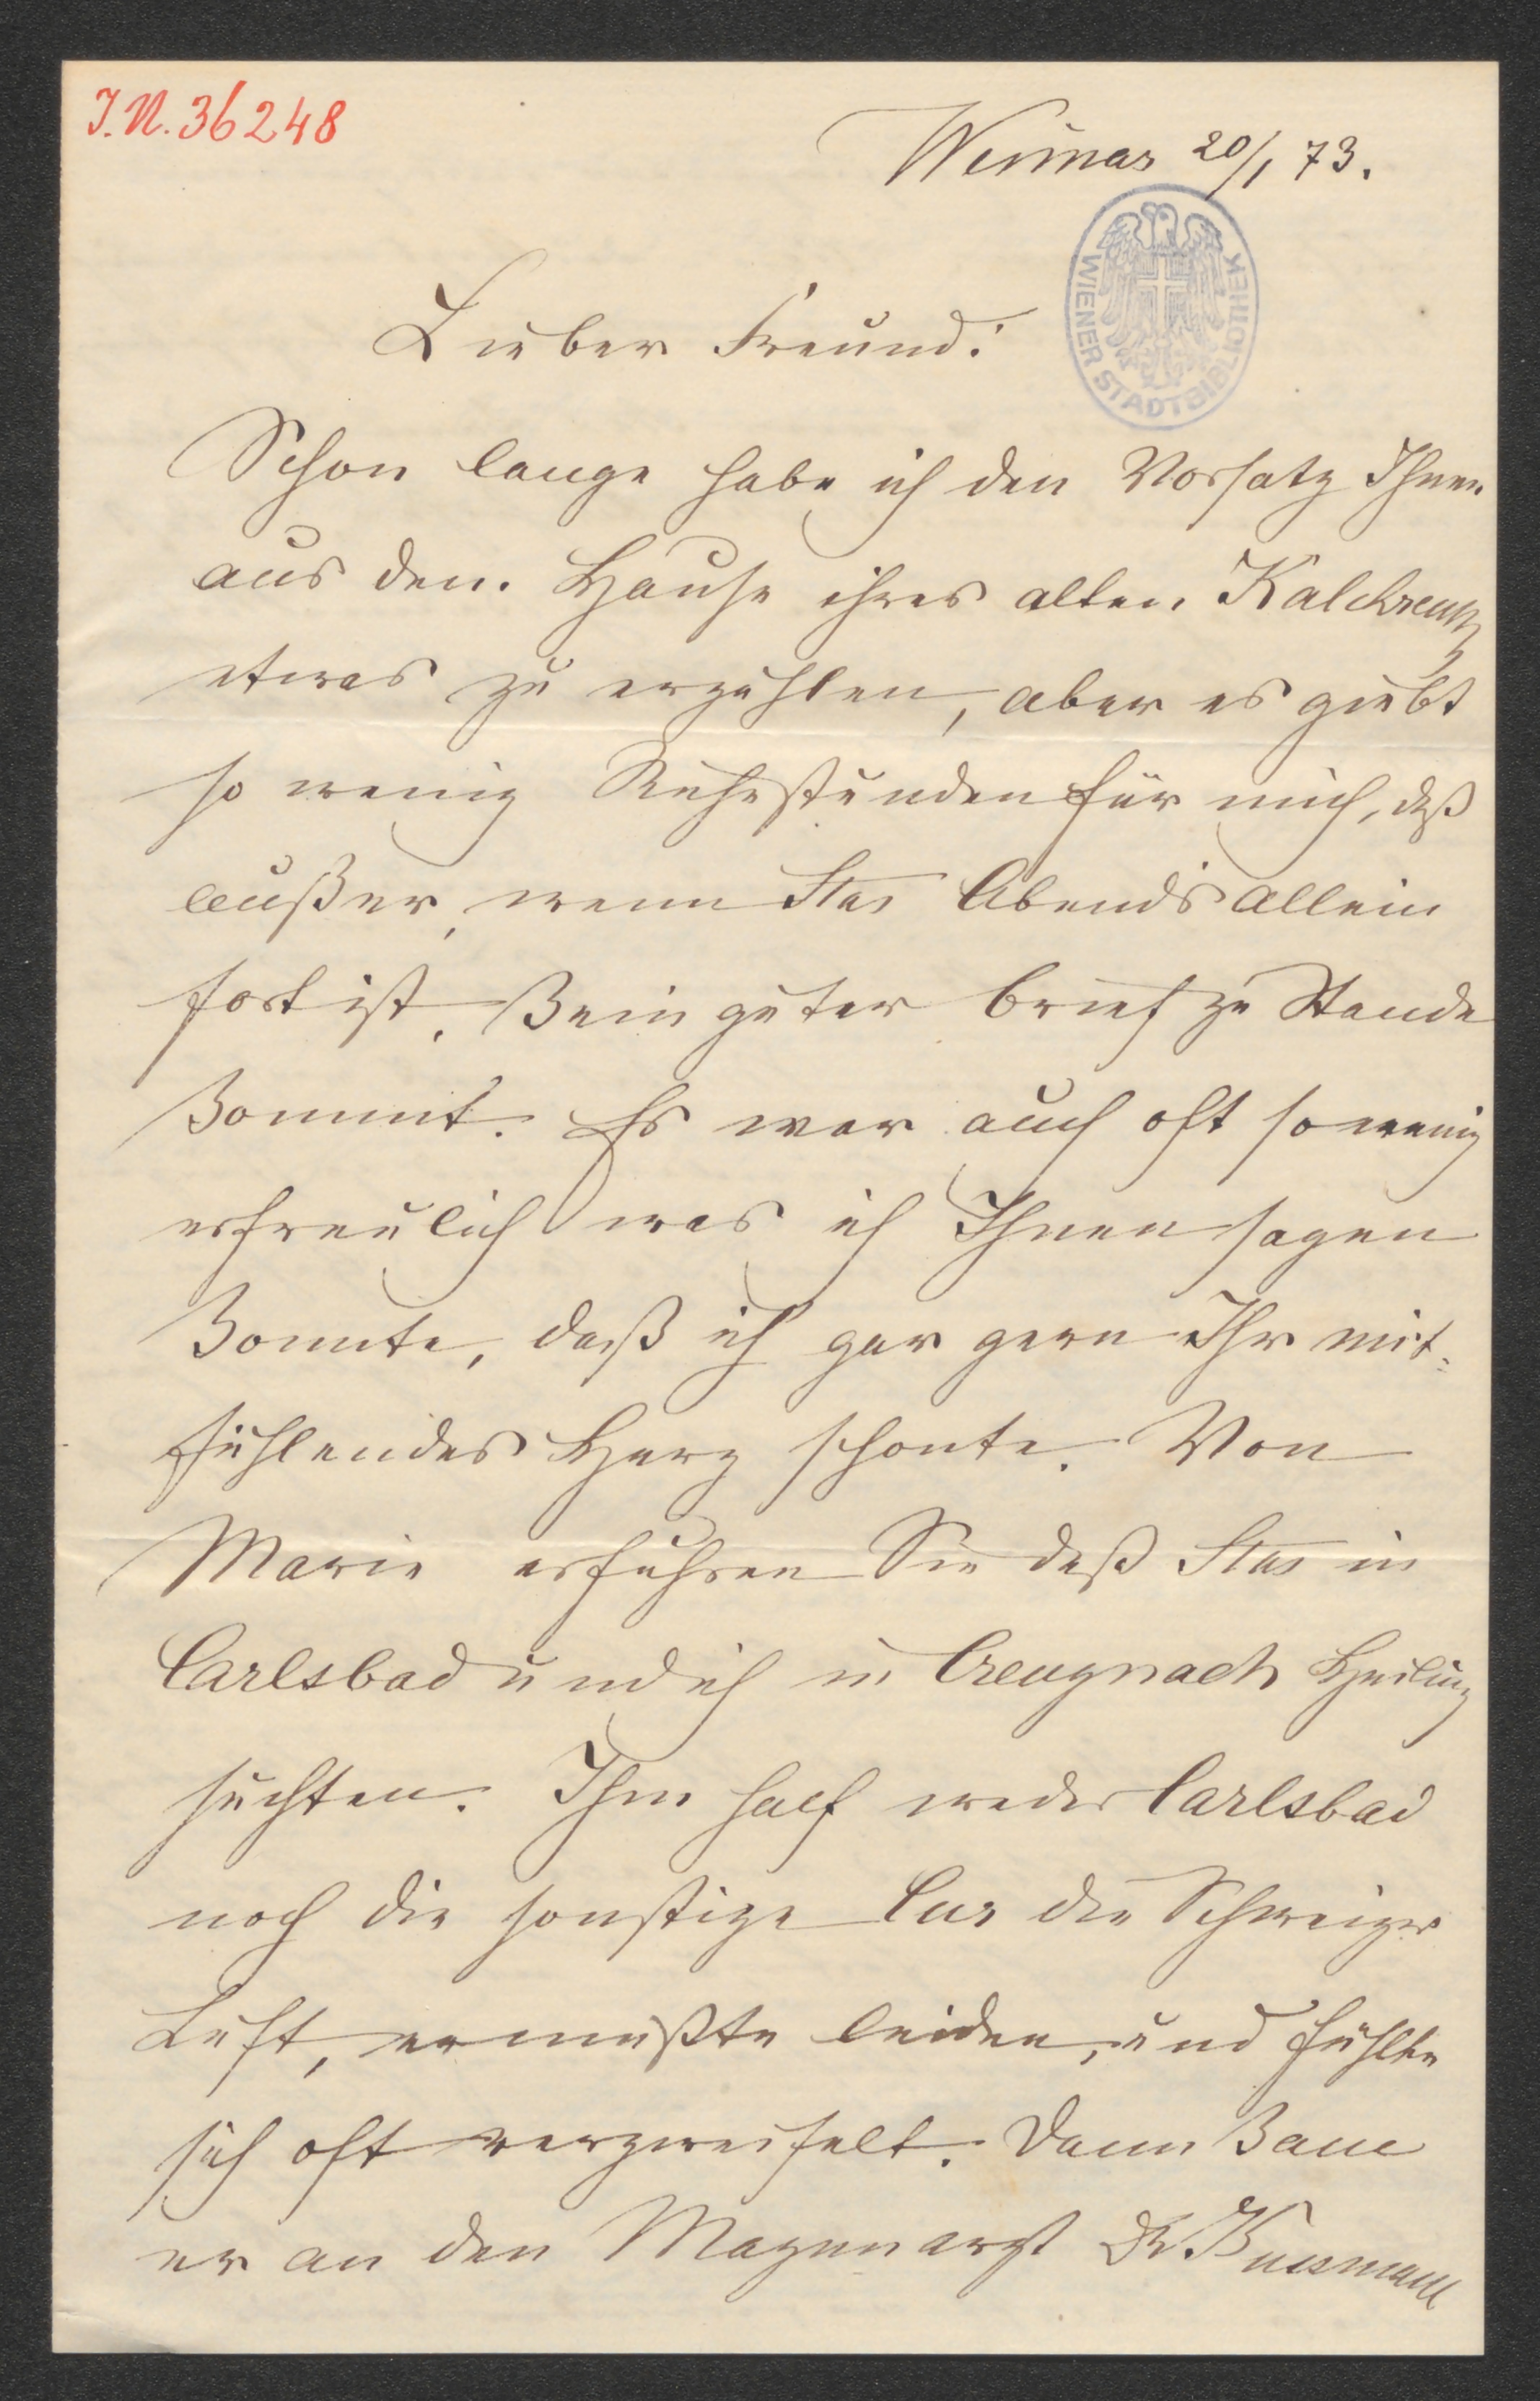 J.N. 36248
Weimar 20/1 73.
WIENER STADTBIBLIOTHEK
Lieber Freund!
Schon lange habe ich den Vorsatz Ihnen
aus dem Hause ihres alten Kalckreuth
etwas zu erzählen, aber es giebt
so wenig Ruhestunden für mich, daß
außer, wenn Stas Abends allein
fort ist, kein guter Brief zu Stande
kommt. Es war auch oft so wenig
erfreulich was ich Ihnen sagen
konnte, daß ich gar gern Ihr mit-
fühlendes Herz schonte. Von
Marie erfuhren Sie daß Stas in
Carlsbad und ich in Creuznach Heilung
suchten. Ihm half weder Carlsbad
noch die sonstige Cur die Schweizer
Luft, er mußte leiden, und fühlte
sich oft verzweifelt. Dann kam
er an den Magenarzt Dr Kussmaul